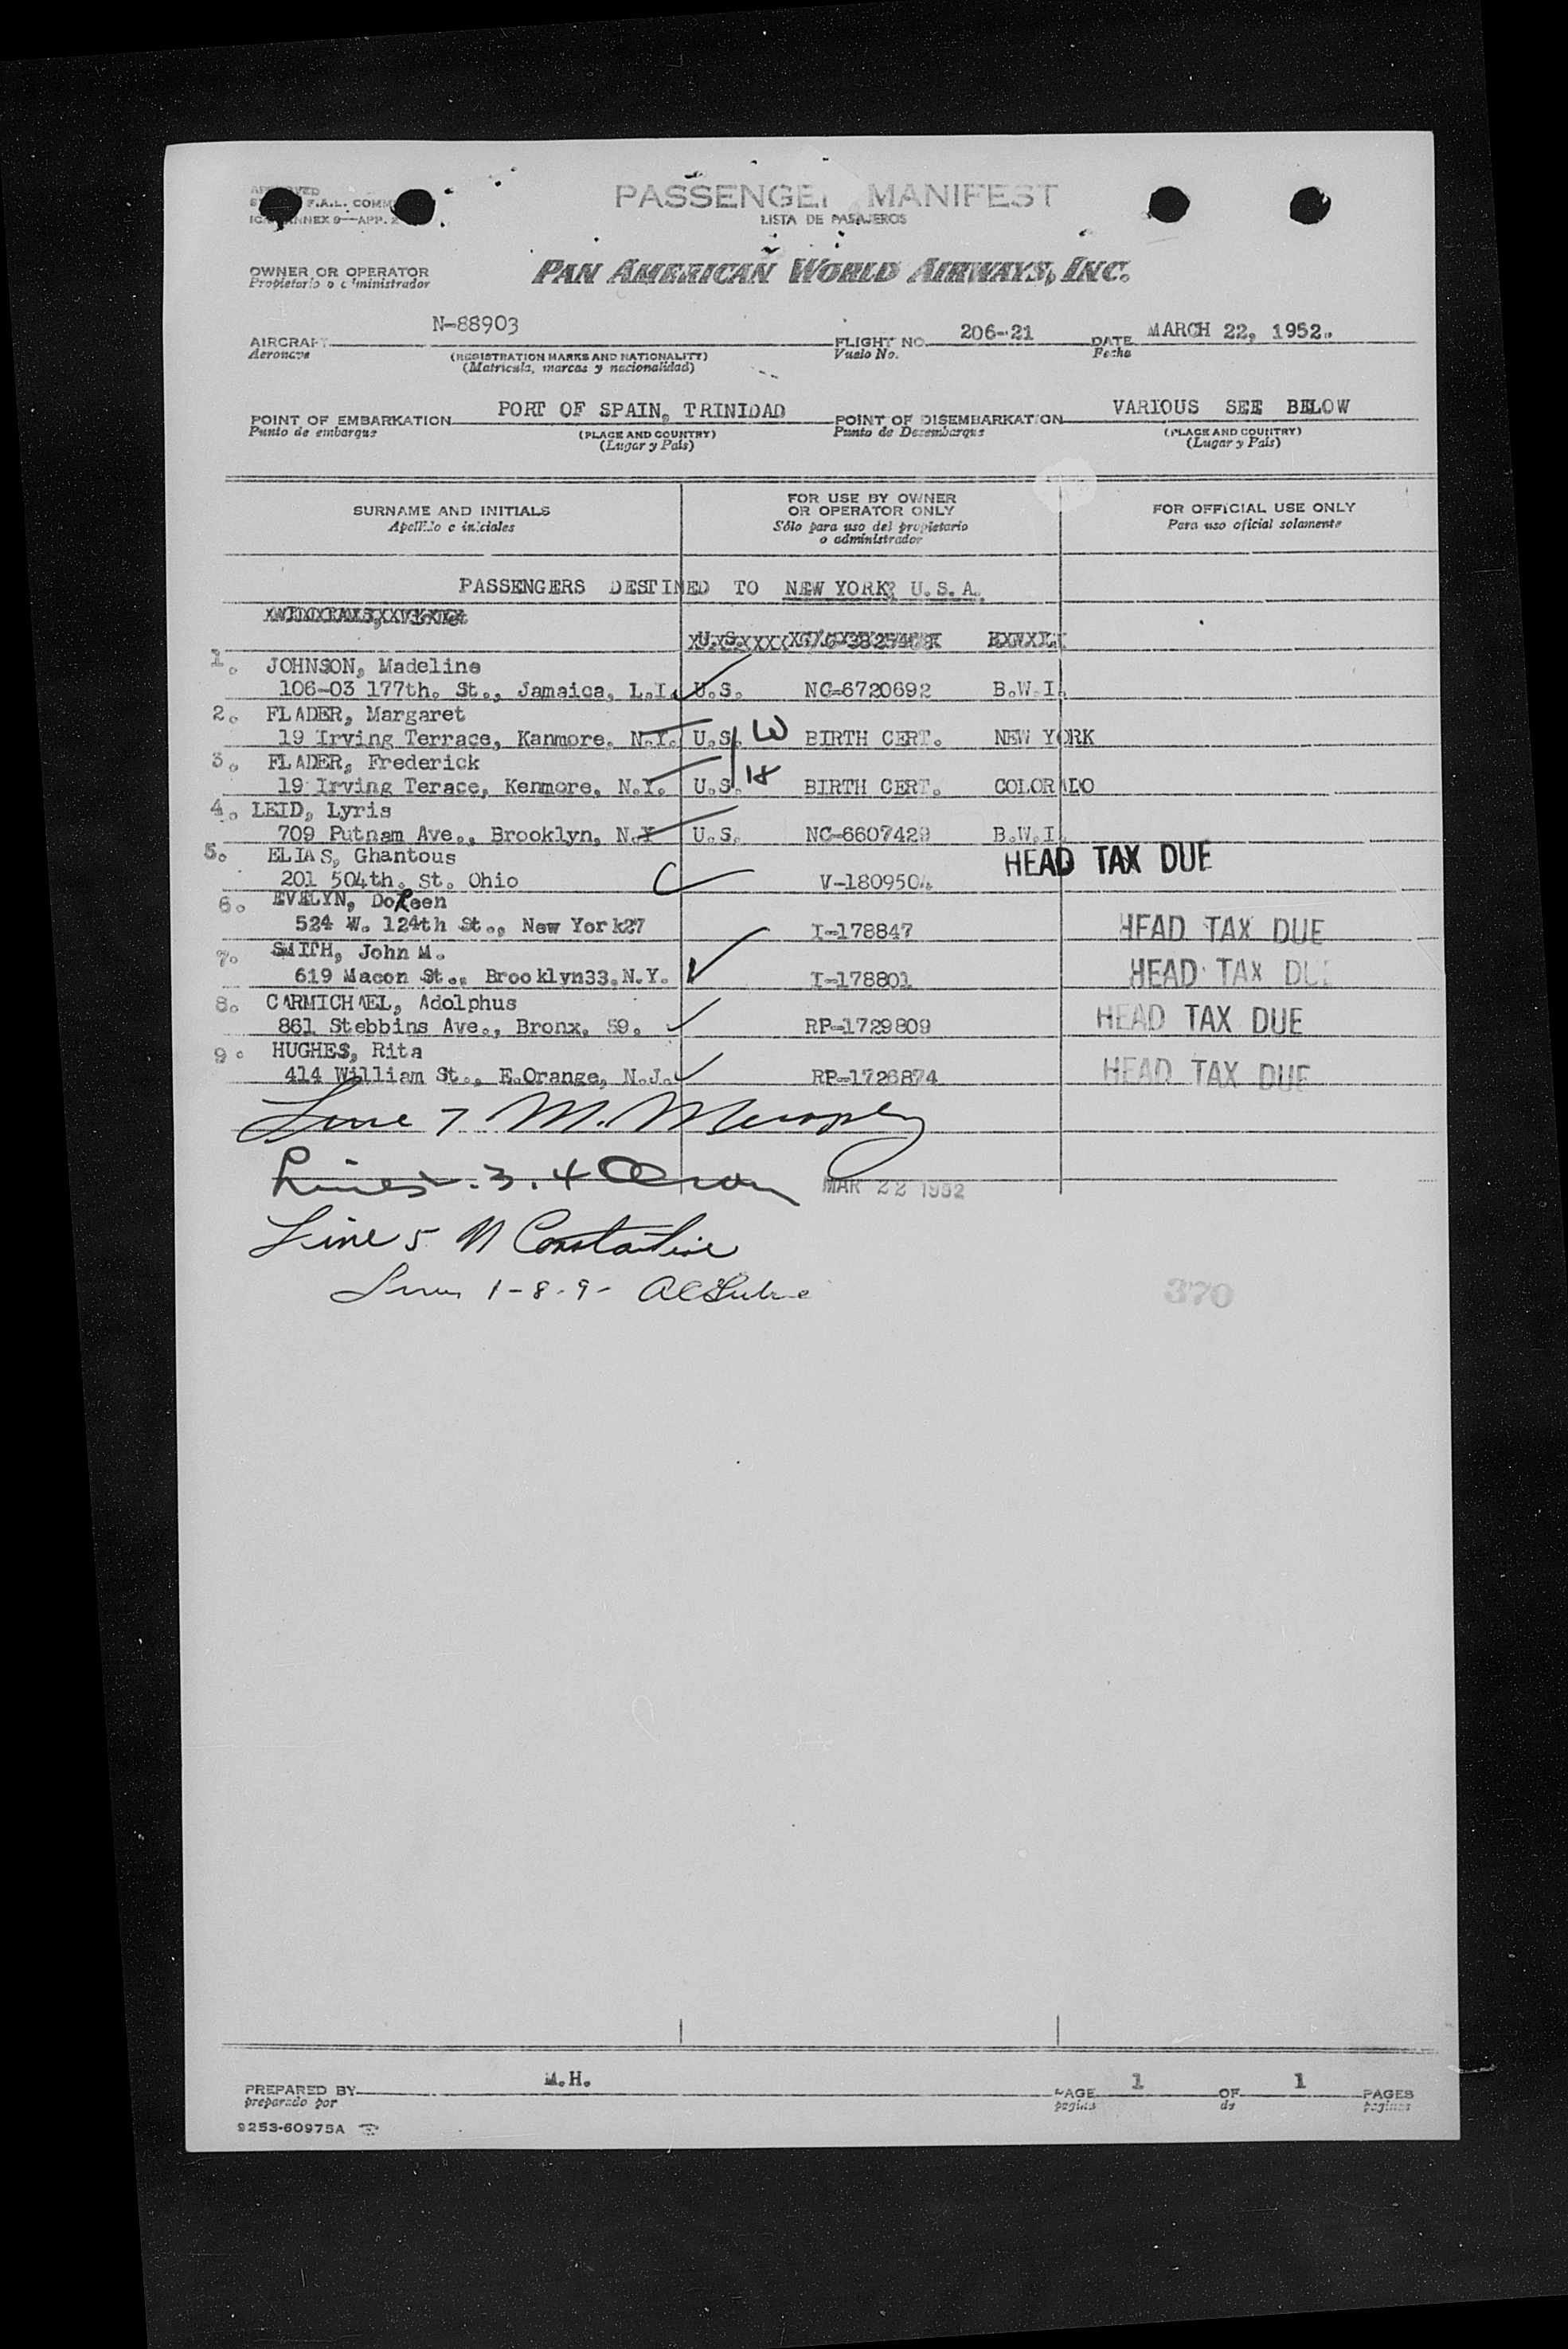 PASSENGE MANIFEST
LISTA DE PASAJEROS
F.A.L. COMM
ANNEX 9—APP. 2
OWNER OR OPERATOR
PAN AMERICAN WORLD AIRWAYS, INC.
Propietario o administrador
N-88903
206-21
MARCH 22, 1952.
AIRCRAFT
FLIGHT NO.
DATE
Aeronave
(REGISTRATION MARKS AND NATIONALITY)
Vuelo No.
Fecha
(Matricula, marcas y nacionalidad)
PORT OF SPAIN, TRINIDAD
VARIOUS SEE BELOW
POINT OF EMBARKATION
POINT OF DISEMBARKATION
Punto de embarque
(PLACE AND COUNTRY)
Punto de Desembarque
(PLACE AND COUNTRY)
(Lugar y Pais)
(Lugar y Pais)
SURNAME AND INITIALS
Apellido e iniciales
FOR USE BY OWNER
OR OPERATOR ONLY
Sólo para uso del propietario
o administrador
FOR OFFICIAL USE ONLY
Para uso oficial solamente
PASSENGERS DESTINED TO NEW YORK, U.S.A.
1. JOHNSON, Madeline
106-03 177th. St., Jamaica, L.I. U.S. NC-6720692 B.W.I.
2. FLADER, Margaret
19 Irving Terrace, Kanmore, N.Y. U.S. W BIRTH CERT. NEW YORK
3. FLADER, Frederick
19 Irving Terace, Kenmore, N.Y. U.S. H BIRTH CERT. COLORADO
4. LEID, Lyris
709 Putnam Ave., Brooklyn, N.Y U.S. NC-6607429 B.W.I.
5. ELIAS, Ghantous HEAD TAX DUE
201 504th. St. Ohio V-1809504
6. EVELYN, DoReen
524 W. 124th St., New York27 I-178847 HEAD TAX DUE
7. SMITH, John M.
619 Macon St., Brooklyn33, N.Y. I-178801 HEAD TAX DUE
8. CARMICHAEL, Adolphus
861 Stebbins Ave., Bronx, 59. RP-1729809 HEAD TAX DUE
9. HUGHES, Rita
414 William St., E.Orange, N.J. RP-1726874 HEAD TAX DUE
Line 7 M. Murphy
Lines 2. 3. 4
MAR 22 1952
Line 5 N Constantine
Lines 1-8-9-
370
M.H.
1 1
PREPARED BY
PAGE OF PAGES
preparado por
pagina de paginas
9253-60975A